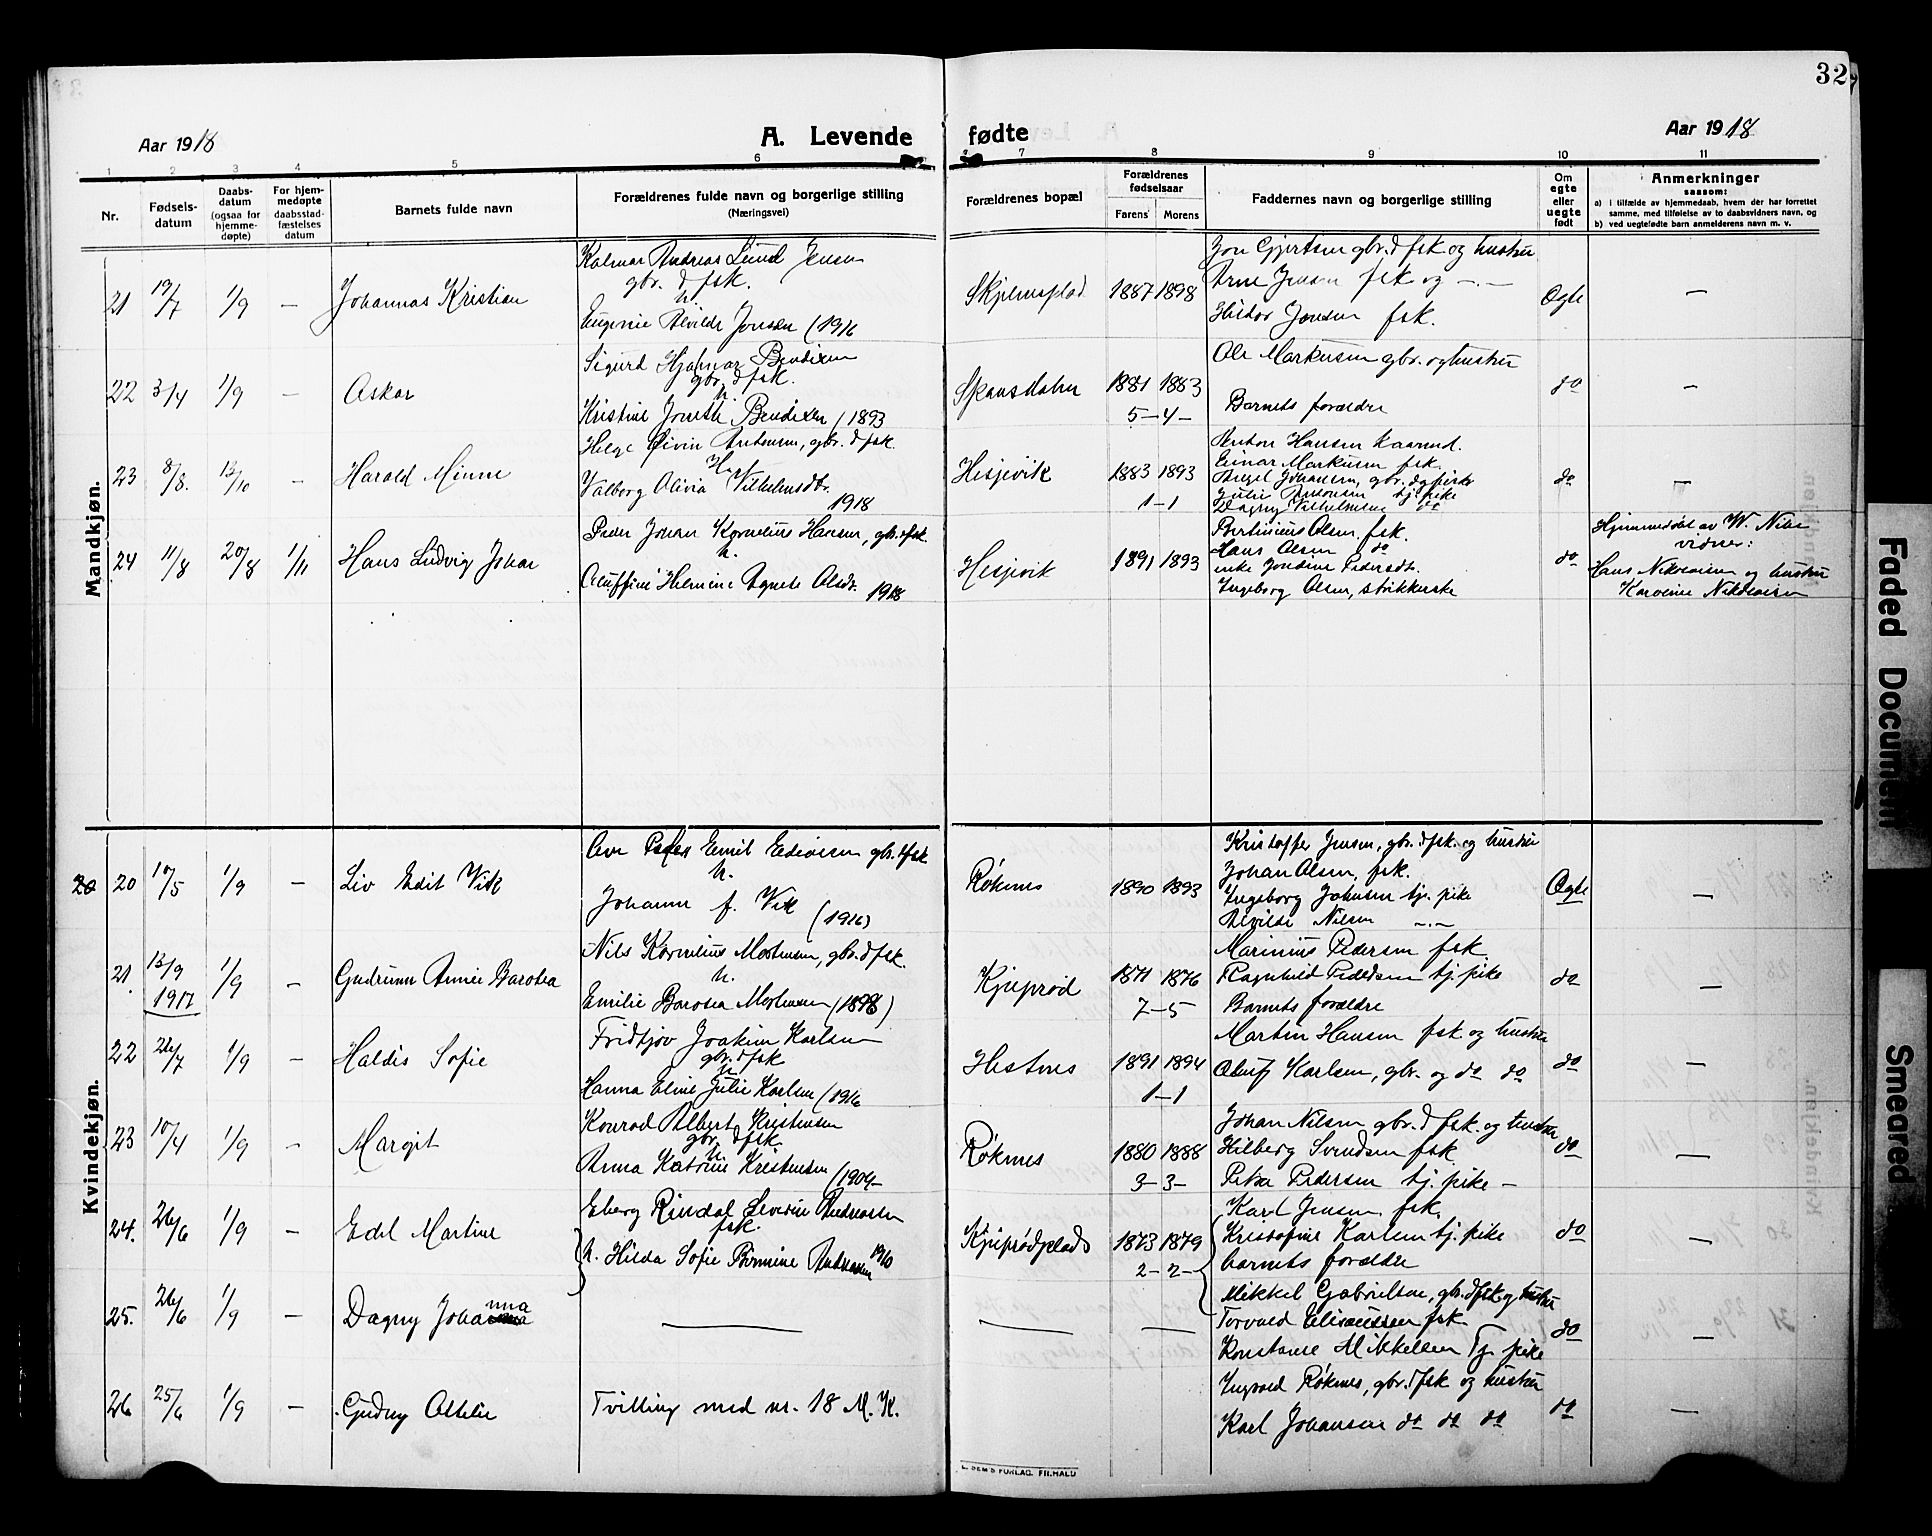 32
Aar 1918
A. Levende fødte
Aar 1918
1 2 3 4 5 6 7 8 9 10 11
Nr.
Fødsels-
datum
Daabs-
datum
(ogsaa for
hjemme-
døpte)
For hjem-
medøpte
daabsstad-
fæstelses
datum
Barnets fulde navn
Forældrenes fulde navn og borgerlige stilling
(Næringsvei)
Forældrenes bopæl
Forældrenes
fødselsaar
Farens Morens
Faddernes navn og borgerlige stilling
Om
egte
eller
uegte
født
Anmerkninger
saasom:
a) i tilfælde av hjemmedaab, hvem der har forrettet
samme, med tilføielse av to daabsvidners navn, og
b) ved uegtefødte barn anmelderens navn m. v.
Mandkjøn.
21 19/7 1/9 — Johannas Kristian
Kalmar Andreas Lund Jensen
gbr. & fsk.
h
Eugenie Alvilde Jensen (1916
1887 1898
Jon Gjertsen gbr. & fsk og hustru
Arne Jensen fsk og -.-
Jensen fsk.
Egte
—
22 3/4 1/9 — Oskar
Sigurd Hjalmar Bendixen
gbr. & fsk.
h
Kristine Joneth Bendixen (1893
1881 1883
5 — 4 —
Ole Markussen gbr. og hustru
Barnets forældre
do
—
23 8/8. 13/10 — Harald Minne
Helge Eivin Antonsen, gbr. & fsk.
H
Valborg Olivia Vilhelmsdtr.
1918
Hesjevik
1883 1893
1 — 1
Anton Hansen kaarmd.
Einar Markusen fsk.
Angel Johansen, gbr. og fisker
Julie Antonsen tj. pike
Dagny Vilhelmsen do
do
—
24 11/8 20/8 1/11 Hans Ludvig Johan
Peder Johan Kornelius Hansen, gbr. & fsk.
h.
Oluffine Hermine Agnete Olsdtr. 1918
Hesjevik
1891 1893
Bertinius Olsen fsk.
Hans Olsen do
enke Jondine Pedersdt.
Ingeborg Olsen, strikkerske
do
Hjemmedøbt av W. Nilse
vidner:
Hans Nikolaisen og hustru
Karoline Nikolaisen
Kvindekjøn.
20 20 10/5 1/9 — Liv Edit Vik
Ove Peder Emil Edvardsen gbr. & fsk
h.
Johanne f. Vik (1916)
Røknes
1890 1893
Kristoffer Jensen, gbr. & fsk. og hustru
Johan Olsen, fsk.
Ingeborg Johnsen tj. pike
Alvilde Nilsen -.-
Egte
—
21. 13/9 1917 1/9 — Gudrunn Annie Barolea
Nils Kornelius Mortensen, gbr. & fsk.
h.
Emilie Barolea Mortensen (1898)
Kjeprød
1871 1876
7 — 5
Marinius Pedersen fsk.
Ragnhild Pedersen tj. pike
Barnets forældre
do
—
22 26/7 1/9 — Haldis Sofie
Fridtjov Joakim Karlsen
gbr. & fsk
h
Hanna Eline Julie Karlsen (1916
Hestnes
1891 1894
1 — 1
Martin Hansen fsk og hustru
Oluf Karlsen, gbr. og do do
do
—
23 10/4 1/9 — Margit
Konrad Albert Kristensen
gbr. & fsk
h.
Anna Katrine Kristensen (1904—
Røknes
1880 1888
3 — 3 —
Johan Nilsen gbr. & fsk. og hustru
Hilberg Svendsen fsk
Petra Pedersen tj. pike —
do
—
24. 26/6 1/9 — Edel Martine
Eberg Rindal Severin Andreassen
fsk.
h. Hilda Sofie Andreassen 1910
Kjeprødplads
1873 1879
2 — 2 —
Karl Jensen fsk.
Kristofine Karlsen tj. pike
barnets forældre
do
—
25. 26/6 1/9 — Dagny Johanna
— — —
Mikkel Gabrielsen, gbr. & fsk. og hustru
Torvald Eliseussen fsk
Konstanse Mikkelsen Tj. pike
do
—
26 25/6 1/9 — Gudny Ottilie
Tvilling med nr. 18 M. K.
Ingvald Røknes, gbr. & fsk og hustru
Karl Johansen do do do
do
—
E. SEM'S FORLAG. FR.HALD
Faded Document
Smeared